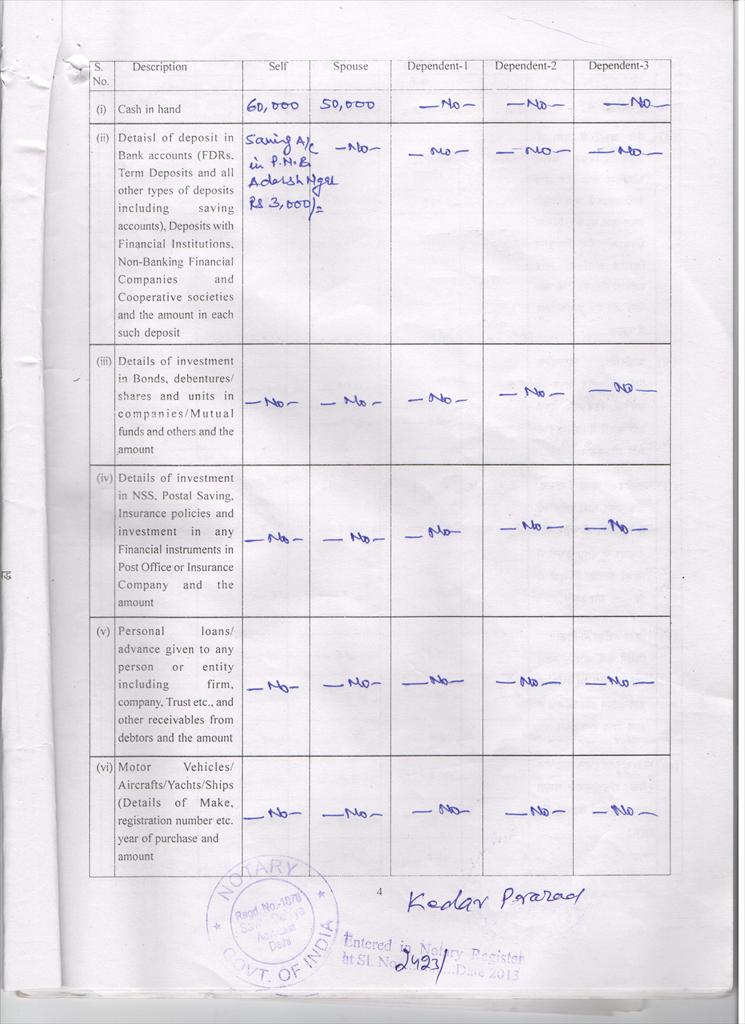 S. No. Description Self Spouse Dependent-1 Dependent-2 Dependent-3
(i) Cash in hand 60,000 50,000 —No— —No— —No—
(ii) Detaisl of deposit in Saving A/c —No— —No— —No— —No—
Bank accounts (FDRs, in P.N.B.
Term Deposits and all Adarsh Ngar
other types of deposits Rs 3,000/=
including saving
accounts), Deposits with
Financial Institutions,
Non-Banking Financial
Companies and
Cooperative societies
and the amount in each
such deposit
(iii) Details of investment
in Bonds, debentures/
shares and units in —No— —No— —No— —No— —No—
companies/Mutual
funds and others and the
amount
(iv) Details of investment
in NSS, Postal Saving,
Insurance policies and
investment in any —No— —No— —No— —No— —No—
Financial instruments in
Post Office or Insurance
Company and the
amount
(v) Personal loans/
advance given to any
person or entity
including firm, —No— —No— —No— —No— —No—
company, Trust etc., and
other receivables from
debtors and the amount
(vi) Motor Vehicles/
Aircrafts/Yachts/Ships
(Details of Make, —No— —No— —No— —No— —No—
registration number etc.
year of purchase and
amount
4
Kedar Perasad
NOTARY
Regd. No.-1878
Advocate
Delhi
GOVT. OF INDIA
Entered in Notary Register
at Sl. No. 2423/ ....Date 2013